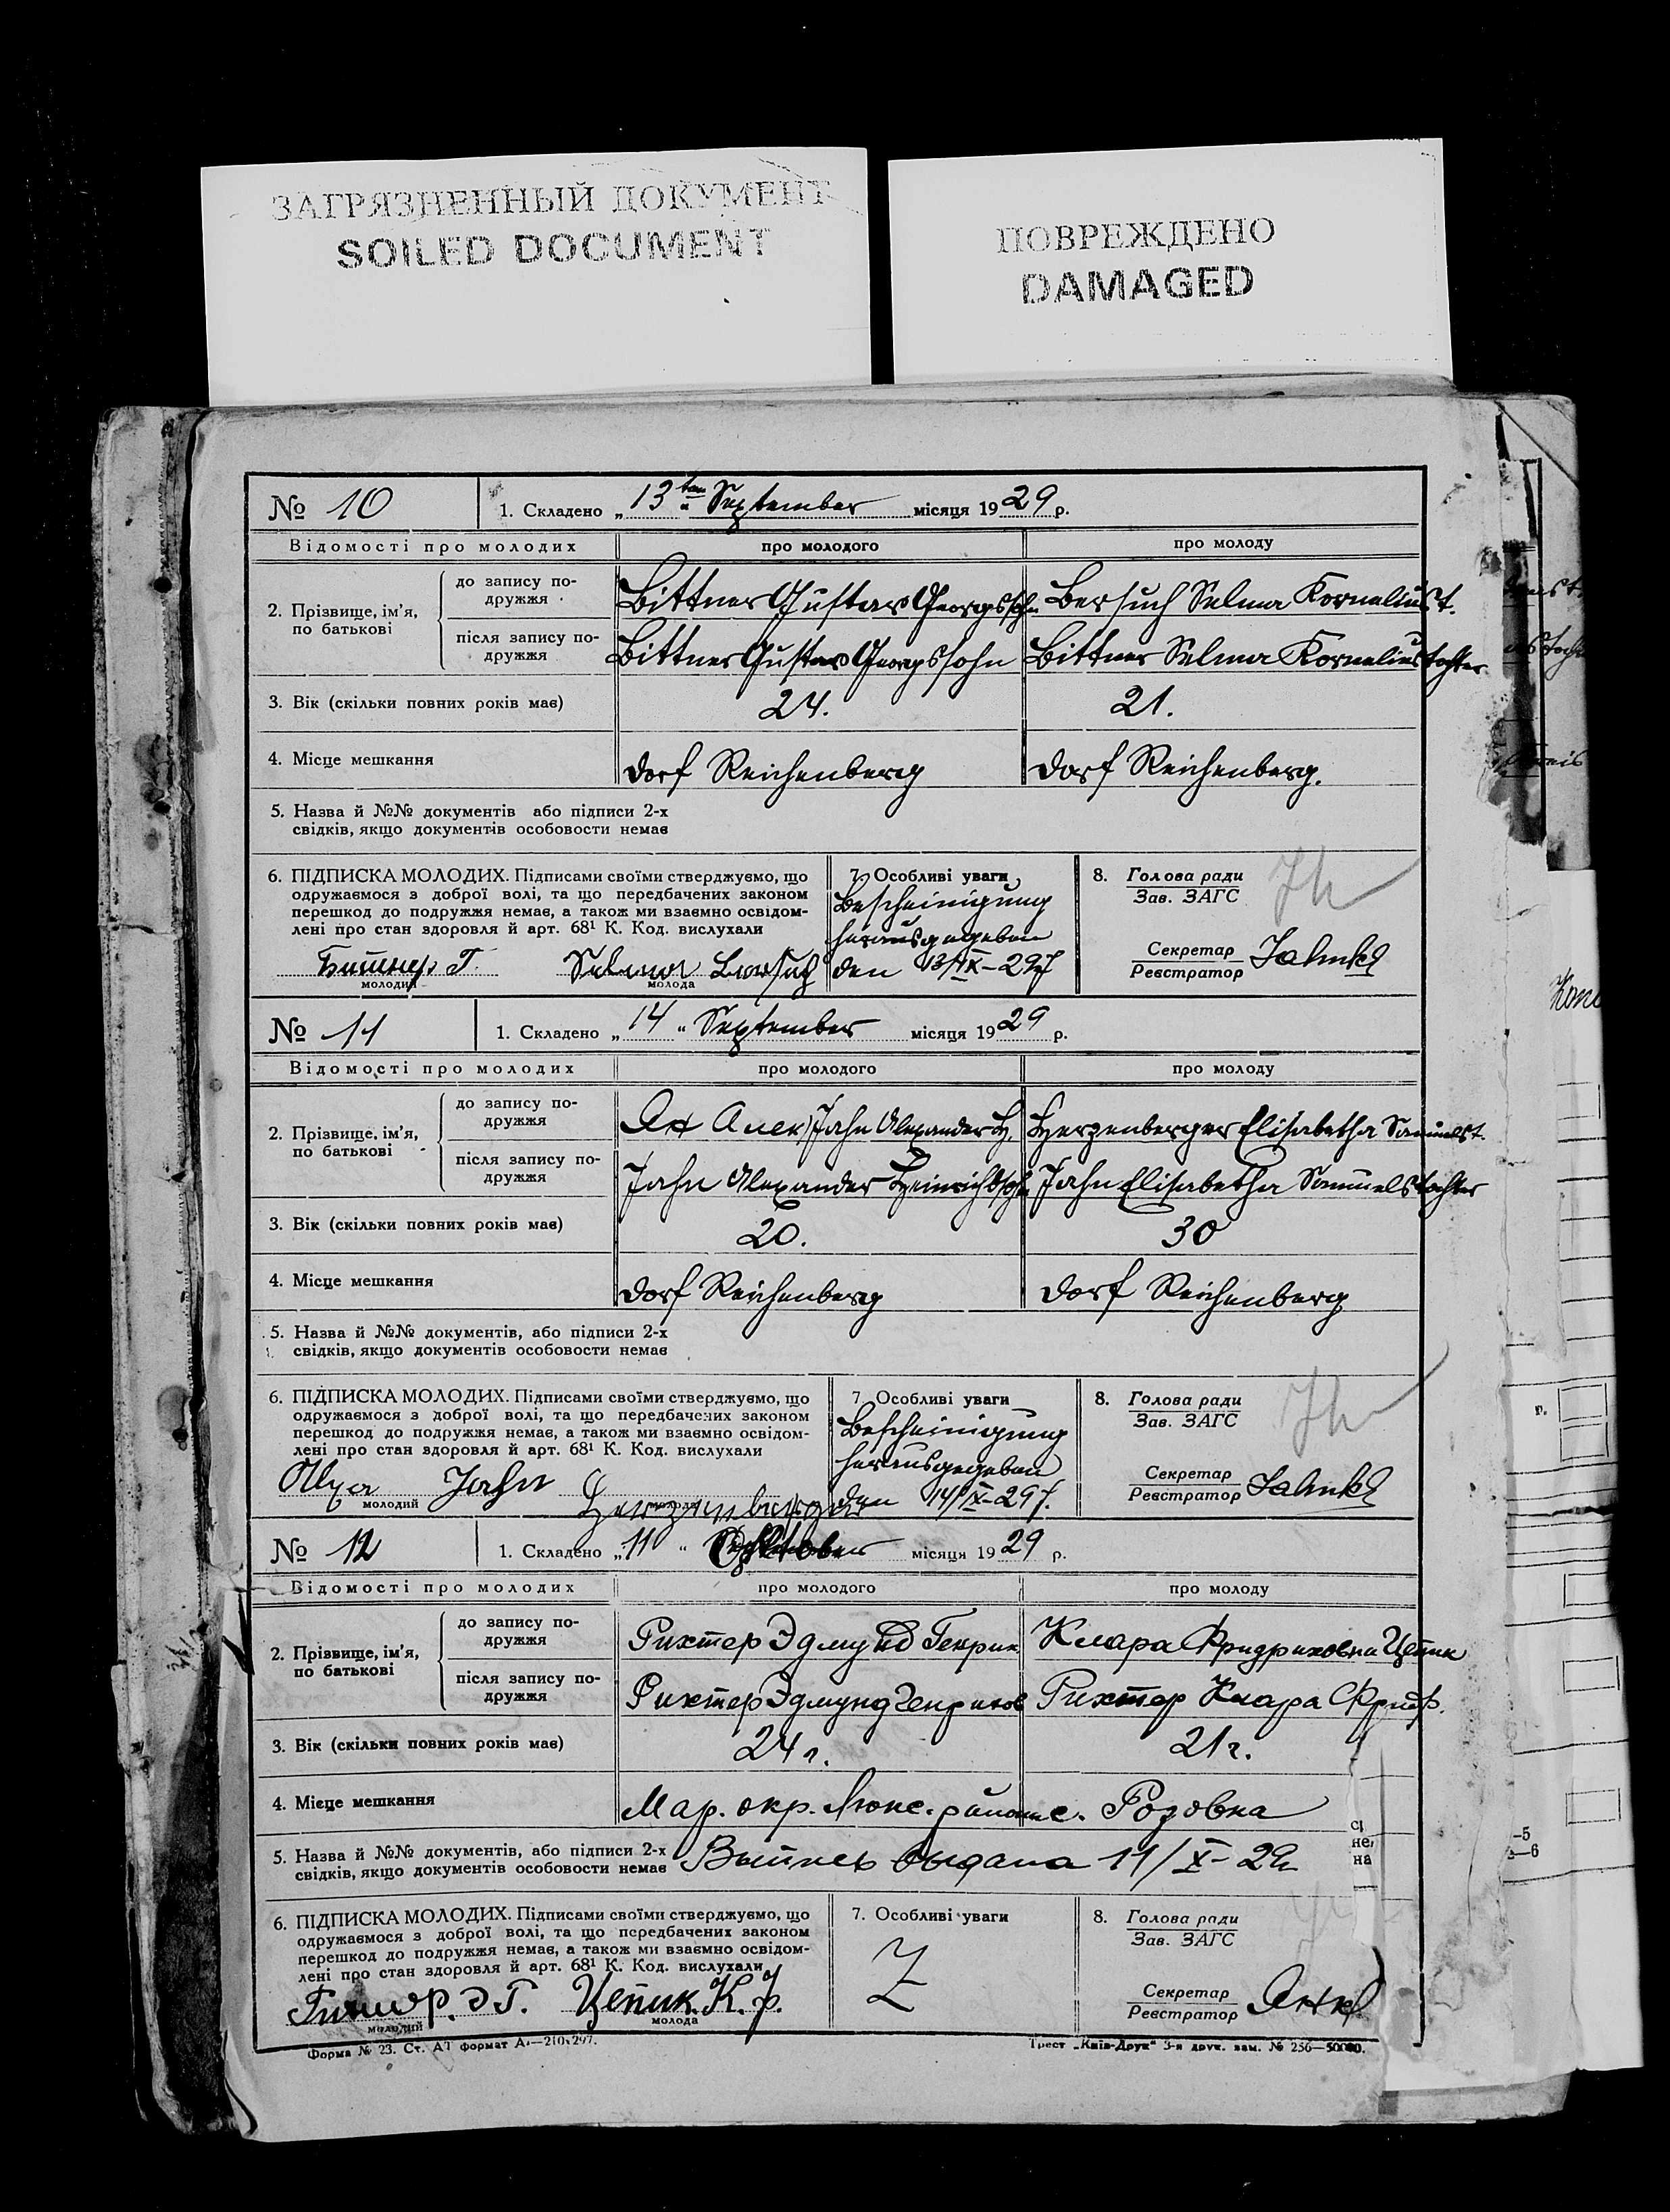 ЗАГРЯЗНЕННЫЙ ДОКУМЕНТ
SOILED DOCUMENT
ПОВРЕЖДЕНО
DAMAGED
№ 10 1. Складено „13ten“ September місяця 1929 р.
Відомості про молодих про молодого про молоду
2. Прізвище, ім’я, по батькові
до запису подружжя Bittner Gustav Georgssohn Bersuch Selma Korneliust.
після запису подружжя Bittner Gustav Georgssohn Bittner Selma Korneliustochter
3. Вік (скільки повних років має) 24. 21.
4. Місце мешкання Dorf Reichenberg Dorf Reichenberg.
5. Назва й №№ документів або підписи 2-х
свідків, якщо документів особовости немає
6. ПІДПИСКА МОЛОДИХ. Підписами своїми стверджуємо, що
одружаємося з доброї волі, та що передбачених законом
перешкод до подружжя немає, а також ми взаємно освідом-
лені про стан здоровля й арт. 68¹ К. Код. вислухали
Битнер Г. Selma Bersuch
молодий молода
7. Особливі уваги
Bescheinigung
herausgegeben
den 13/IX-29
8. Голова ради
Зав. ЗАГС
Секретар
Реєстратор Jahnke
№ 11 1. Складено „14“ September місяця 1929 р.
Відомості про молодих про молодого про молоду
2. Прізвище, ім’я, по батькові
до запису подружжя Jahn Alexander H. Herzenberger Elisabetha Samuelst.
після запису подружжя Jahn Alexander Heinrichssohn Jahn Elisabetha Samuelstochter
3. Вік (скільки повних років має) 20. 30
4. Місце мешкання Dorf Reichenberg Dorf Reichenberg
5. Назва й №№ документів, або підписи 2-х
свідків, якщо документів особовости немає
6. ПІДПИСКА МОЛОДИХ. Підписами своїми стверджуємо, що
одружаємося з доброї волі, та що передбачених законом
перешкод до подружжя немає, а також ми взаємно освідом-
лені про стан здоровля й арт. 68¹ К. Код. вислухали
Jahn Herzenberger
молодий молода
7. Особливі уваги
Bescheinigung
herausgegeben
den 14/IX-29
8. Голова ради
Зав. ЗАГС
Секретар
Реєстратор Jahnke
№ 12 1. Складено „11“ Oktober місяця 1929 р.
Відомості про молодих про молодого про молоду
2. Прізвище, ім’я, по батькові
до запису подружжя Рихтер Эдмунд Генрих Клара Фридриховна Цепик
після запису подружжя Рихтер Эдмунд Генрихов Рихтер Клара Фридр.
3. Вік (скільки повних років має) 24 г. 21 г.
4. Місце мешкання Мар. окр. Люкс. района с. Розовка
5. Назва й №№ документів, або підписи 2-х
свідків, якщо документів особовости немає Выпись выдана 11/X-29
6. ПІДПИСКА МОЛОДИХ. Підписами своїми стверджуємо, що
одружаємося з доброї волі, та що передбачених законом
перешкод до подружжя немає, а також ми взаємно освідом-
лені про стан здоровля й арт. 68¹ К. Код. вислухали
Цепик. К. Ф.
молодий молода
7. Особливі уваги
Z
8. Голова ради
Зав. ЗАГС
Секретар
Реєстратор Янке
Форма № 23. Ст. А1 формат А₄—210×297.
Трест „Київ-Друк“ 3-я друк. зам. № 256—50000.